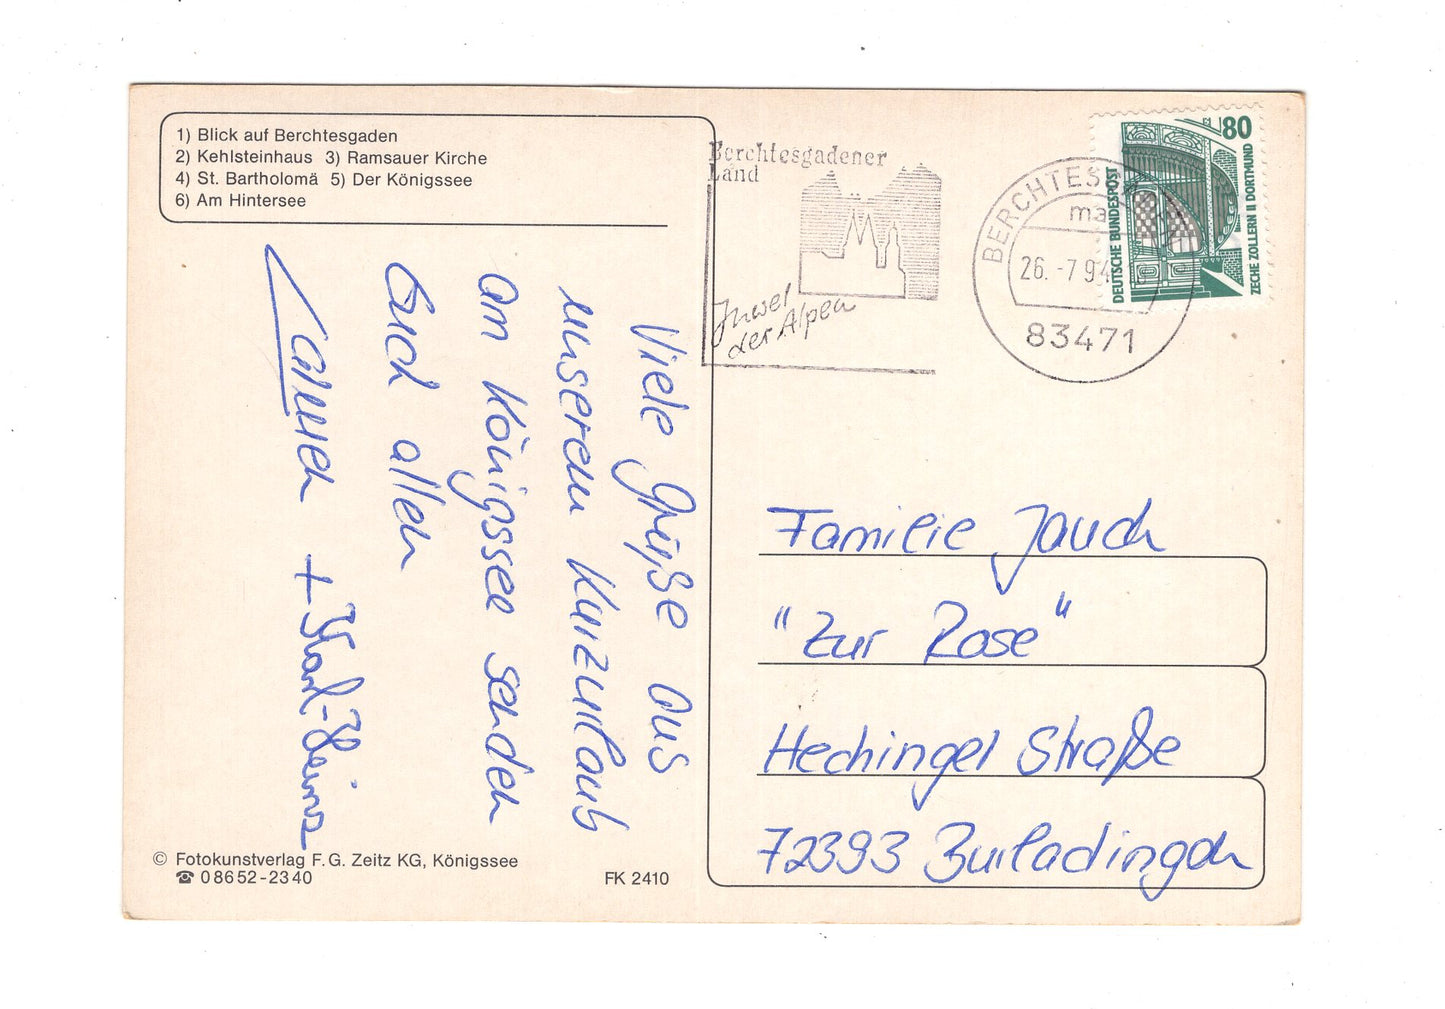 1) Blick auf Berchtesgaden
2) Kehlsteinhaus 3) Ramsauer Kirche
4) St. Bartholomä 5) Der Königssee
6) Am Hintersee
Berchtesgadener
Land
Juwel
der Alpen
BERCHTESG
ma
26.-7.94
83471
80
DEUTSCHE BUNDESPOST
ZECHE ZOLLERN II DORTMUND
Viele Grüße aus
unserem Kurzurlaub
am Königssee senden
Euch allen
+ Karl-Heinz
Familie Jauch
"Zur Rose"
Hechinger Straße
72393 Burladingen
© Fotokunstverlag F. G. Zeitz KG, Königssee
☎ 08652-2340
FK 2410